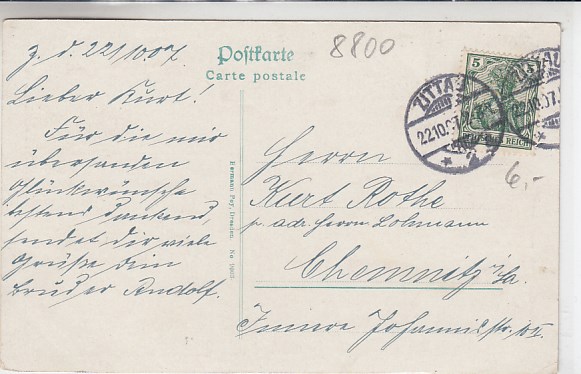 Z. d. 22/10 07.
Lieber Kurt!
Für die mir
übersandten
Glückwünsche
bestens dankend,
sendet dir viele
Grüße dein
Bruder Rudolf.
Postkarte
Carte postale
8800
5
REICH
ZITTAU
22.10.07.
ZITTAU
.10.07.
6,-
Hermann Poy, Dresden. No
Herrn
Kurt Rothe
p. adr. Herrn Lohmann
Chemnitz i/Sa.
Innere Johannisstr.